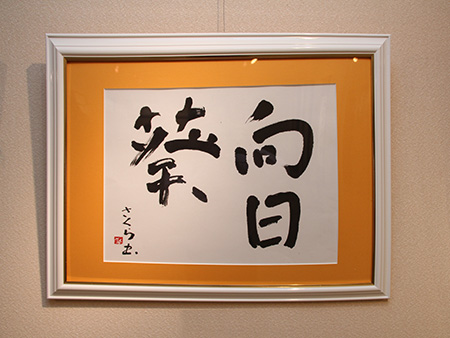 向日
葵
さくら書